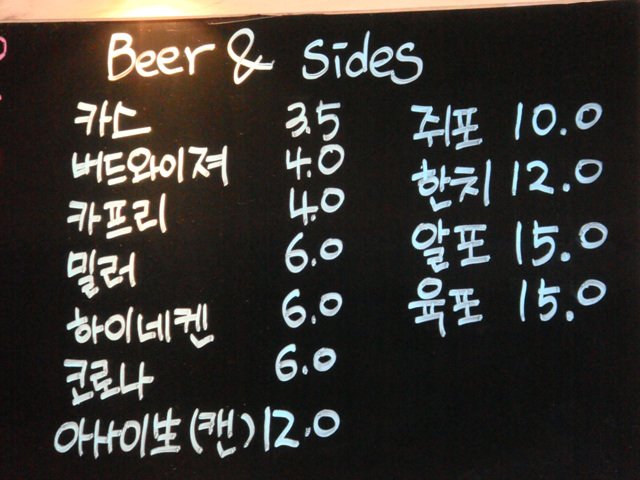 Beer & Sides
카스 3.5
버드와이져 4.0
카프리 4.0
밀러 6.0
하이네켄 6.0
코로나 6.0
아사이生(캔) 12.0
쥐포 10.0
한치 12.0
알포 15.0
육포 15.0